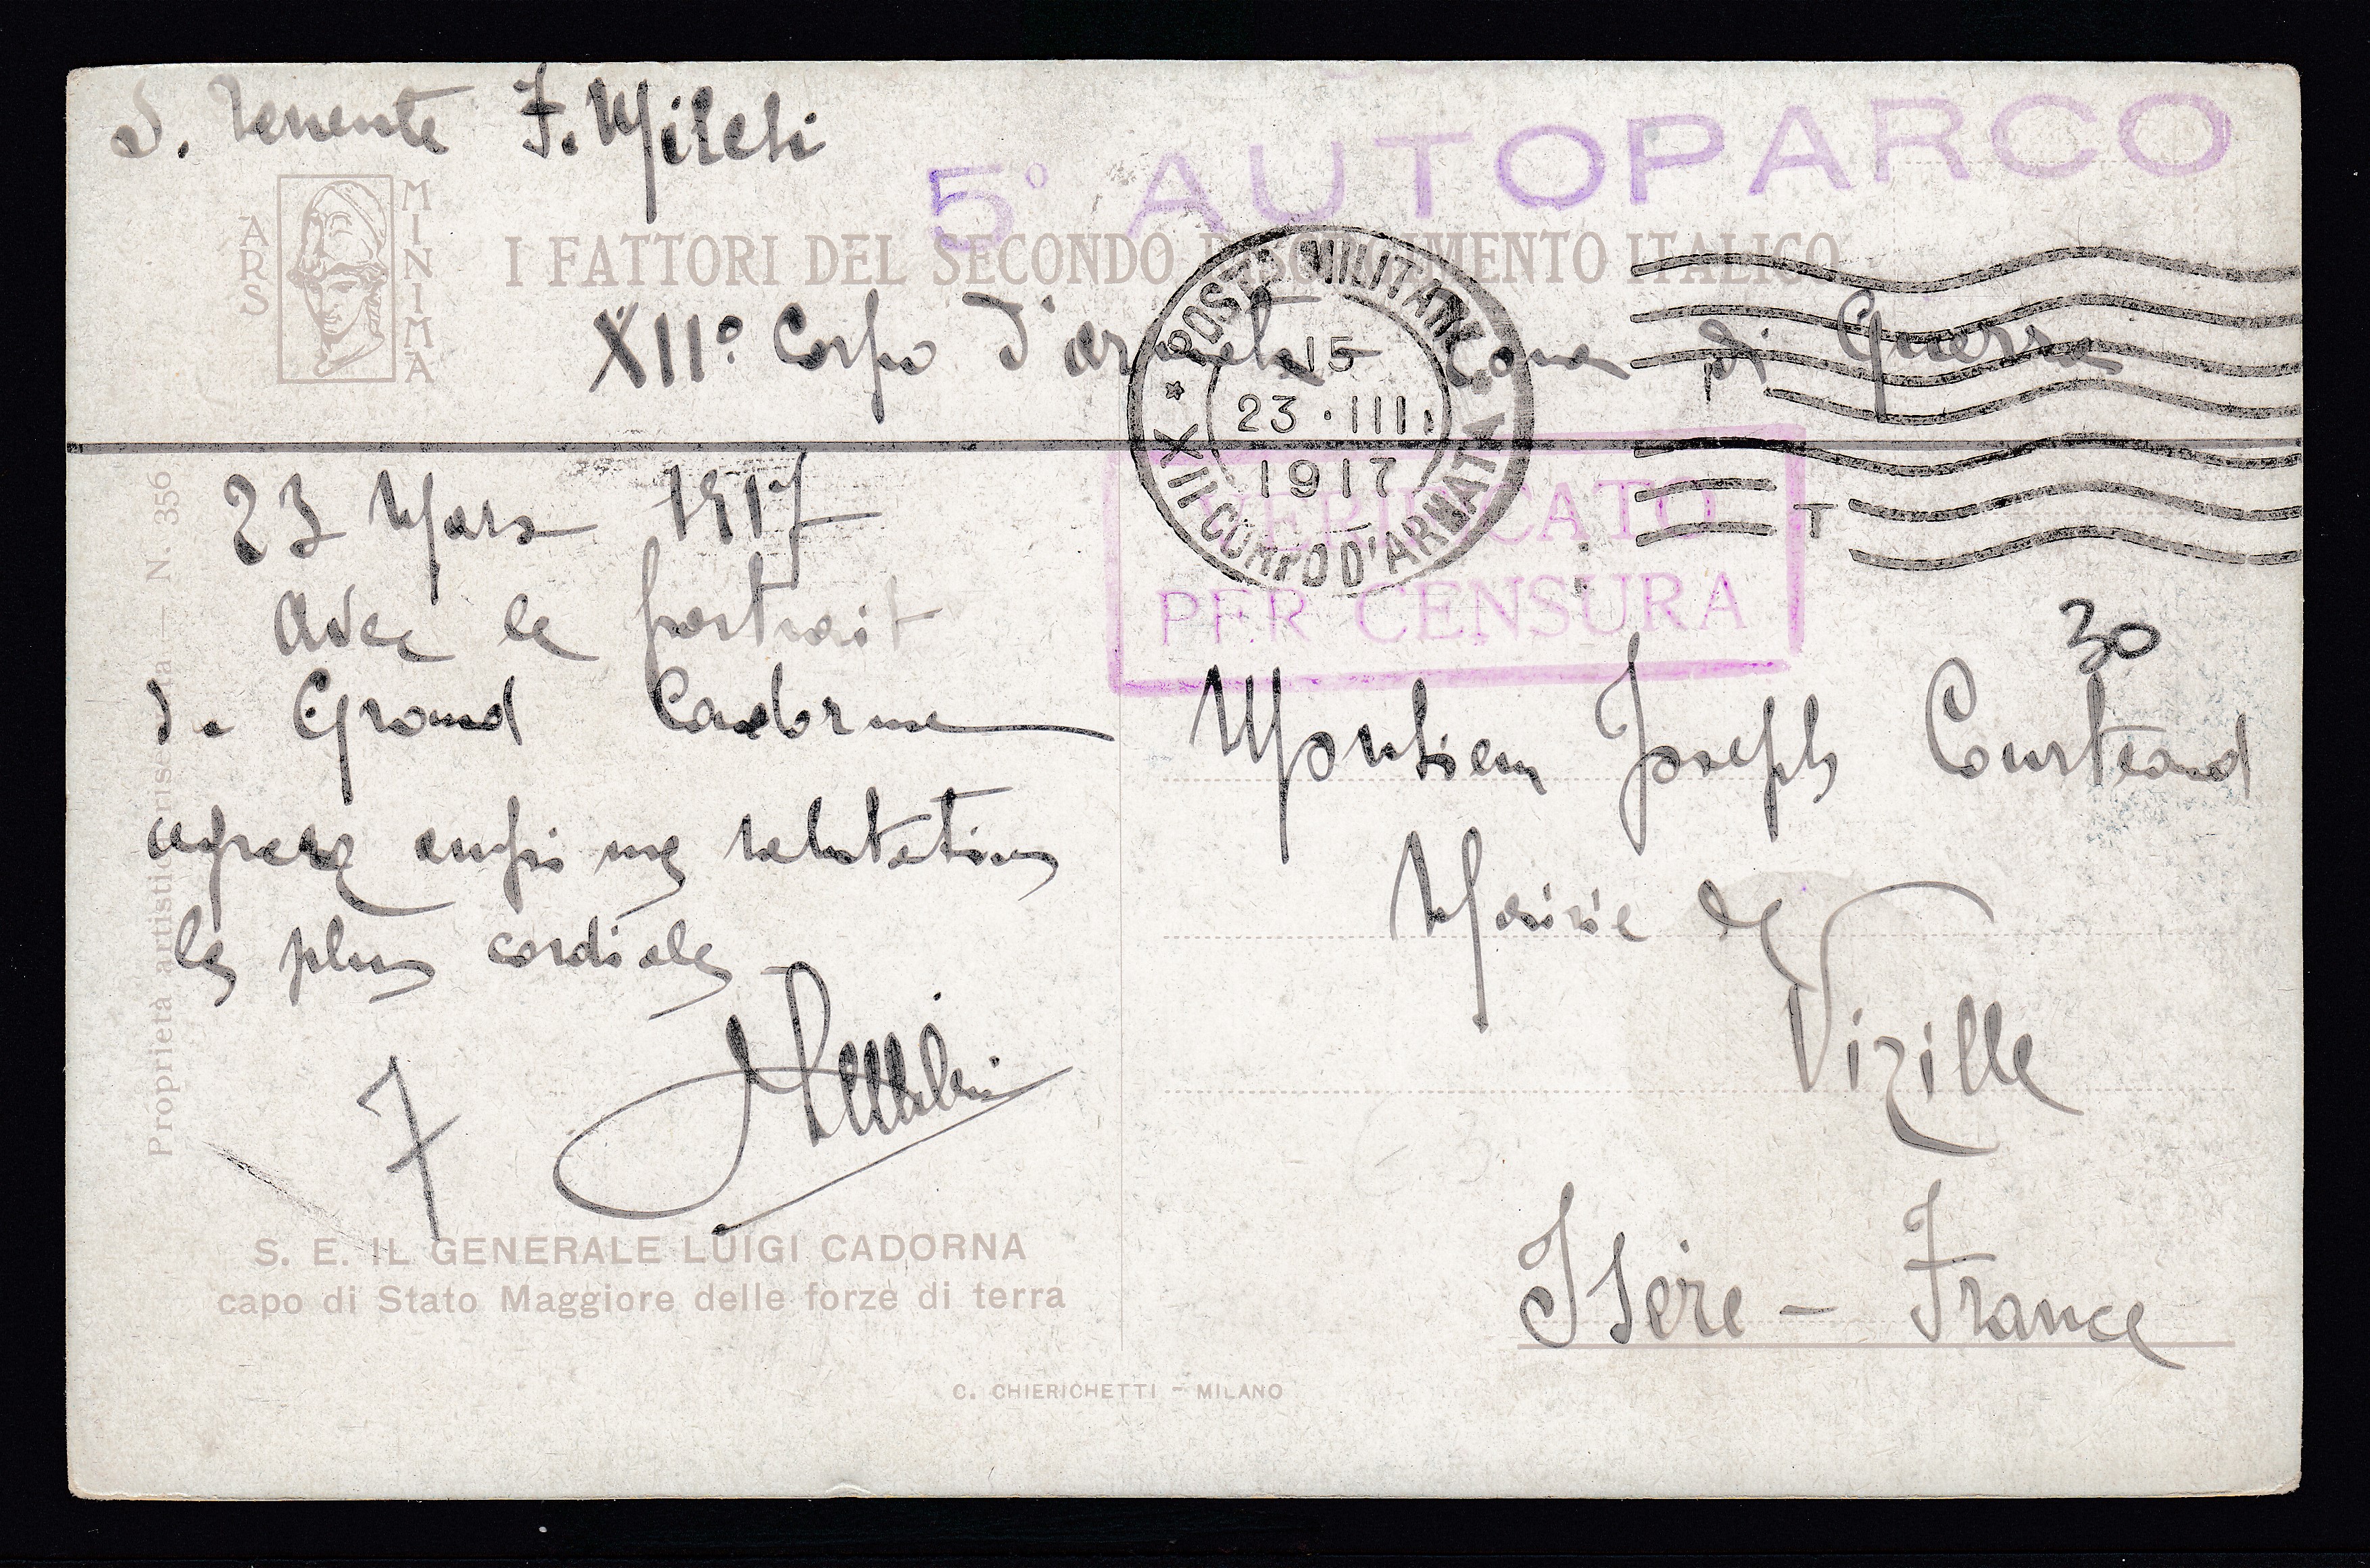 S. Tenente F. Mileti
5° AUTOPARCO
ARS MINIMA
I FATTORI DEL SECONDO RISORGIMENTO ITALICO
XII° Corpo d'armata Zona di Guerra
POSTA MILITARE
15
23 · III
1917
XII CORPO D'ARMATA
T
VERIFICATO
PER CENSURA
30
23 Mars 1917
Avec le portrait
du Grand Cadorna
agreez aussi mes salutations
les plus cordiales
7
Monsieur Joseph Courteaud
Mairie de
Vizille
Isère - France
Proprietà artistica N. 356
S. E. IL GENERALE LUIGI CADORNA
capo di Stato Maggiore delle forze di terra
C. CHIERICHETTI - MILANO